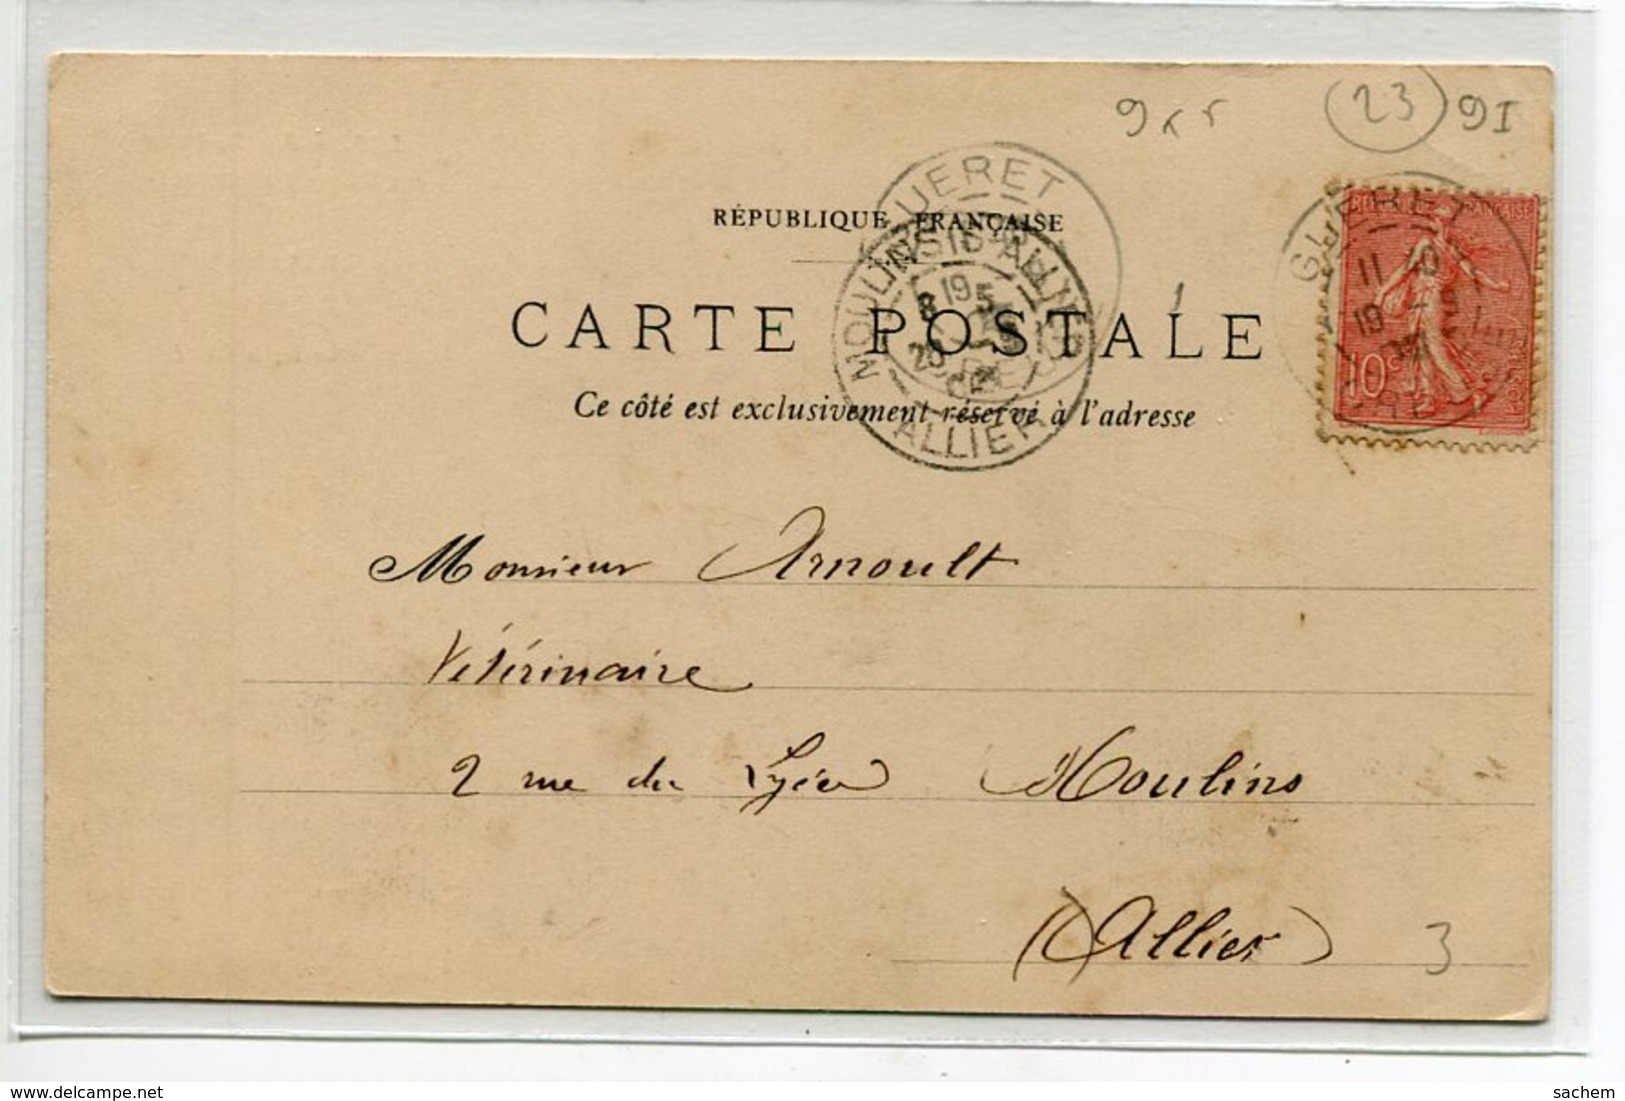 9 x 5 23 9I
RÉPUBLIQUE FRANÇAISE
GUERET
MOULINS-S-ALLIER
ALLIER
GUERET
10c
CARTE POSTALE
Ce côté est exclusivement réservé à l'adresse
Monsieur Arnoult
Vétérinaire
2 rue du Lycée Moulins
(Allier)
3
www.delcampe.net
sachem